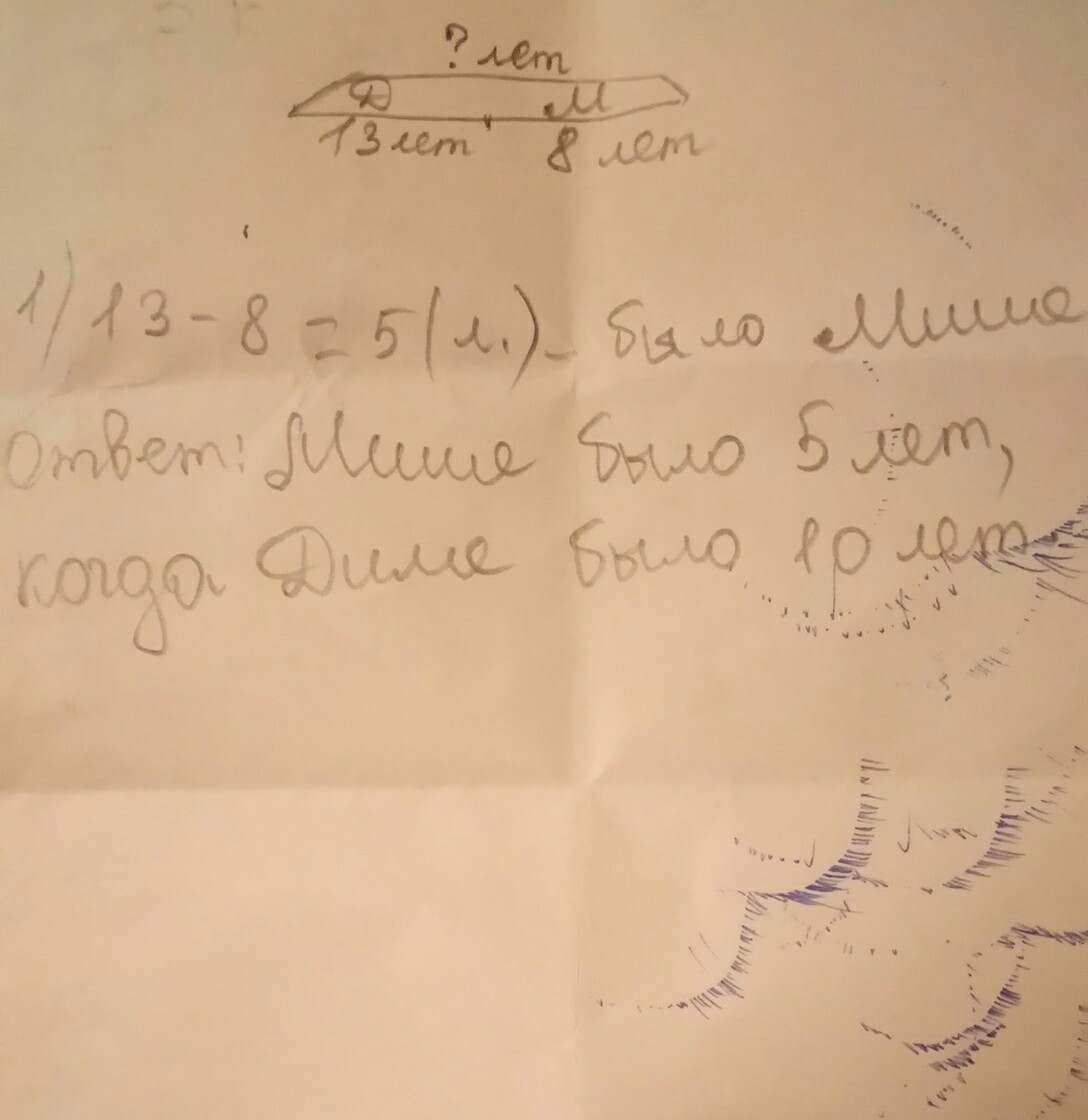 ? лет
Д М
13 лет 8 лет
1) 13 - 8 = 5 (л.) - было Мише
Ответ: Мише было 5 лет,
когда Диме было 10 лет.